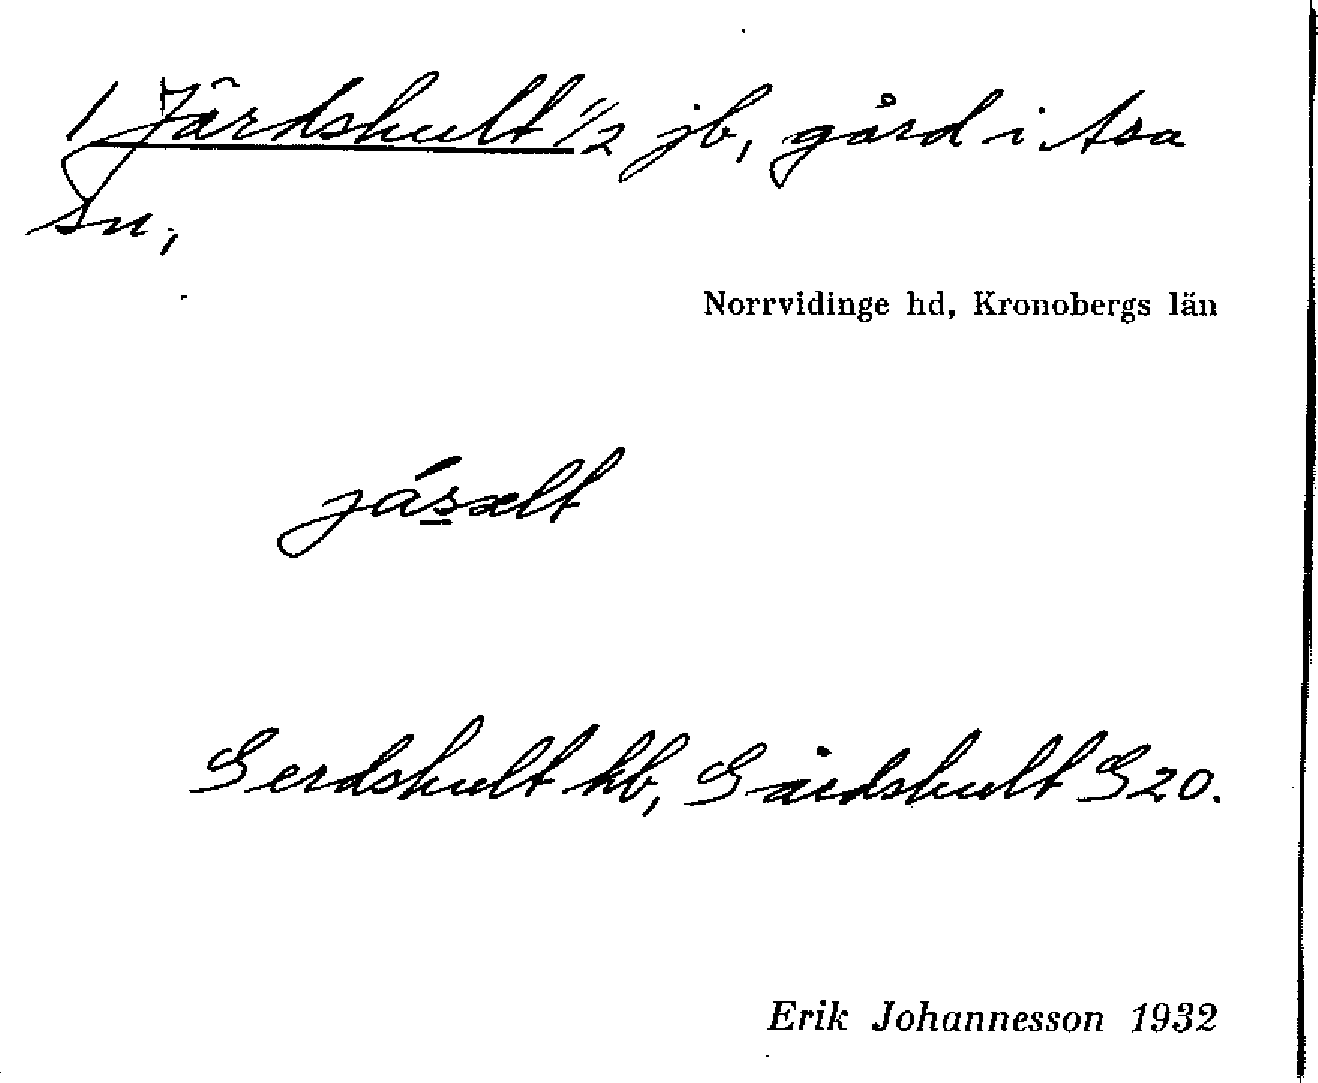 1 Järdshult 1/2 jb, gård i Asa
sn,
Norrvidinge hd, Kronobergs län
jásælt
Gerdshult kb, Gärdshult G20.
Erik Johannesson 1932